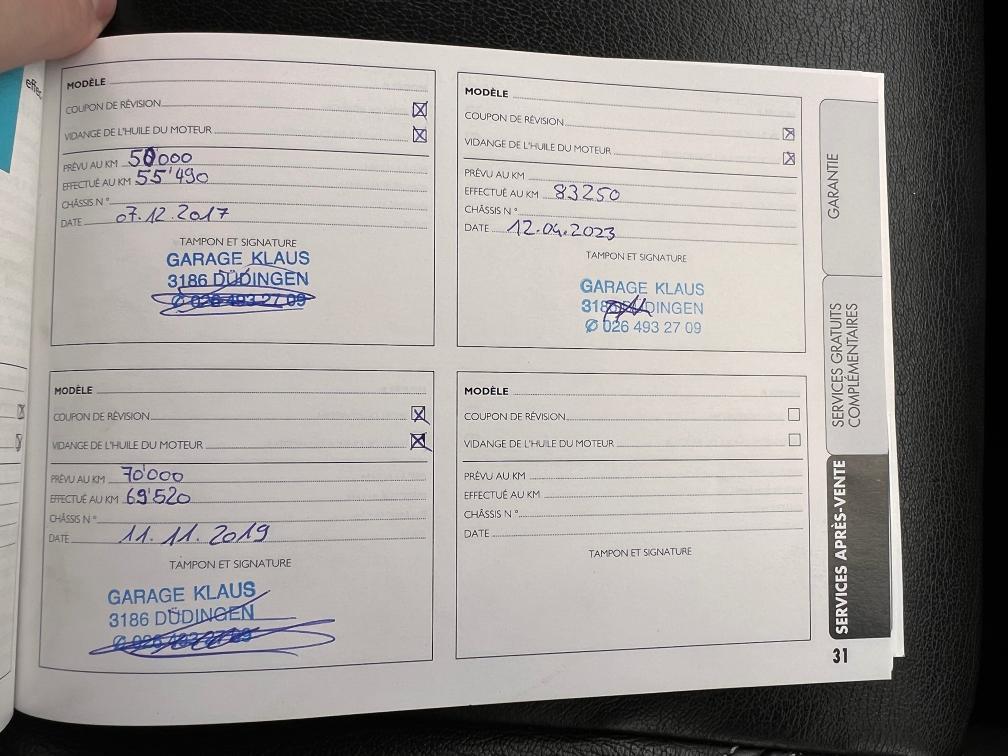 effec
MODÈLE
COUPON DE RÉVISION
VIDANGE DE L'HUILE DU MOTEUR
PRÉVU AU KM 50'000
EFFECTUÉ AU KM 55'490
CHÂSSIS N°
DATE 07.12.2017
TAMPON ET SIGNATURE
GARAGE KLAUS
3186 DÜDINGEN
✆ 026 493 27 09
MODÈLE
COUPON DE RÉVISION
VIDANGE DE L'HUILE DU MOTEUR
PRÉVU AU KM
EFFECTUÉ AU KM 83250
CHÂSSIS N°
DATE 12.04.2023
TAMPON ET SIGNATURE
GARAGE KLAUS
3186 DÜDINGEN
✆ 026 493 27 09
MODÈLE
COUPON DE RÉVISION
VIDANGE DE L'HUILE DU MOTEUR
PRÉVU AU KM 70'000
EFFECTUÉ AU KM 69'520
CHÂSSIS N°
DATE 11.11.2019
TAMPON ET SIGNATURE
GARAGE KLAUS
3186 DÜDINGEN
MODÈLE
COUPON DE RÉVISION
VIDANGE DE L'HUILE DU MOTEUR
PRÉVU AU KM
EFFECTUÉ AU KM
CHÂSSIS N°
DATE
TAMPON ET SIGNATURE
GARANTIE
SERVICES GRATUITS
COMPLÉMENTAIRES
SERVICES APRÈS-VENTE
31